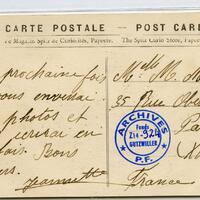 CARTE POSTALE
POST CAR
e Magasin Spitz de Curiosités, Papeete.
The Spitz Curio Store, Papeete
prochaine fois
vous enverrai
photos et
Bons
Jeannette
Mlle M.
35 Rue
France
ARCHIVES
Fonds
Z1e-324
GUTZWILLER
P.F.